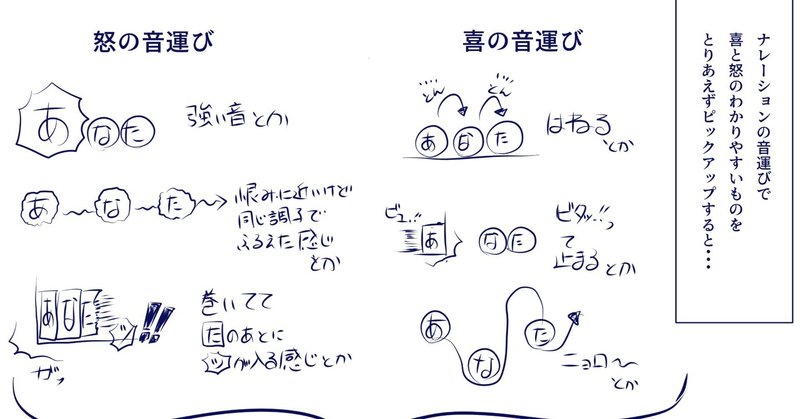 ナレーションの音運びで
喜と怒のわかりやすいものを
とりあえずピックアップすると・・・
喜の音運び
とん とん
あ な た
はねる
とか
ビュッ!!
あ な た
ビタッ!!って
止まる とか
あ な た
ニョロ〜
とか
怒の音運び
あ な た
強い音とか
あ 〜 な 〜 た 〜
恨みに近いけど
同じ調子で
ふるえた感じ
とか
あ な た ツ !!
ガッ
巻いてて
たのあとに
ツが入る感じとか